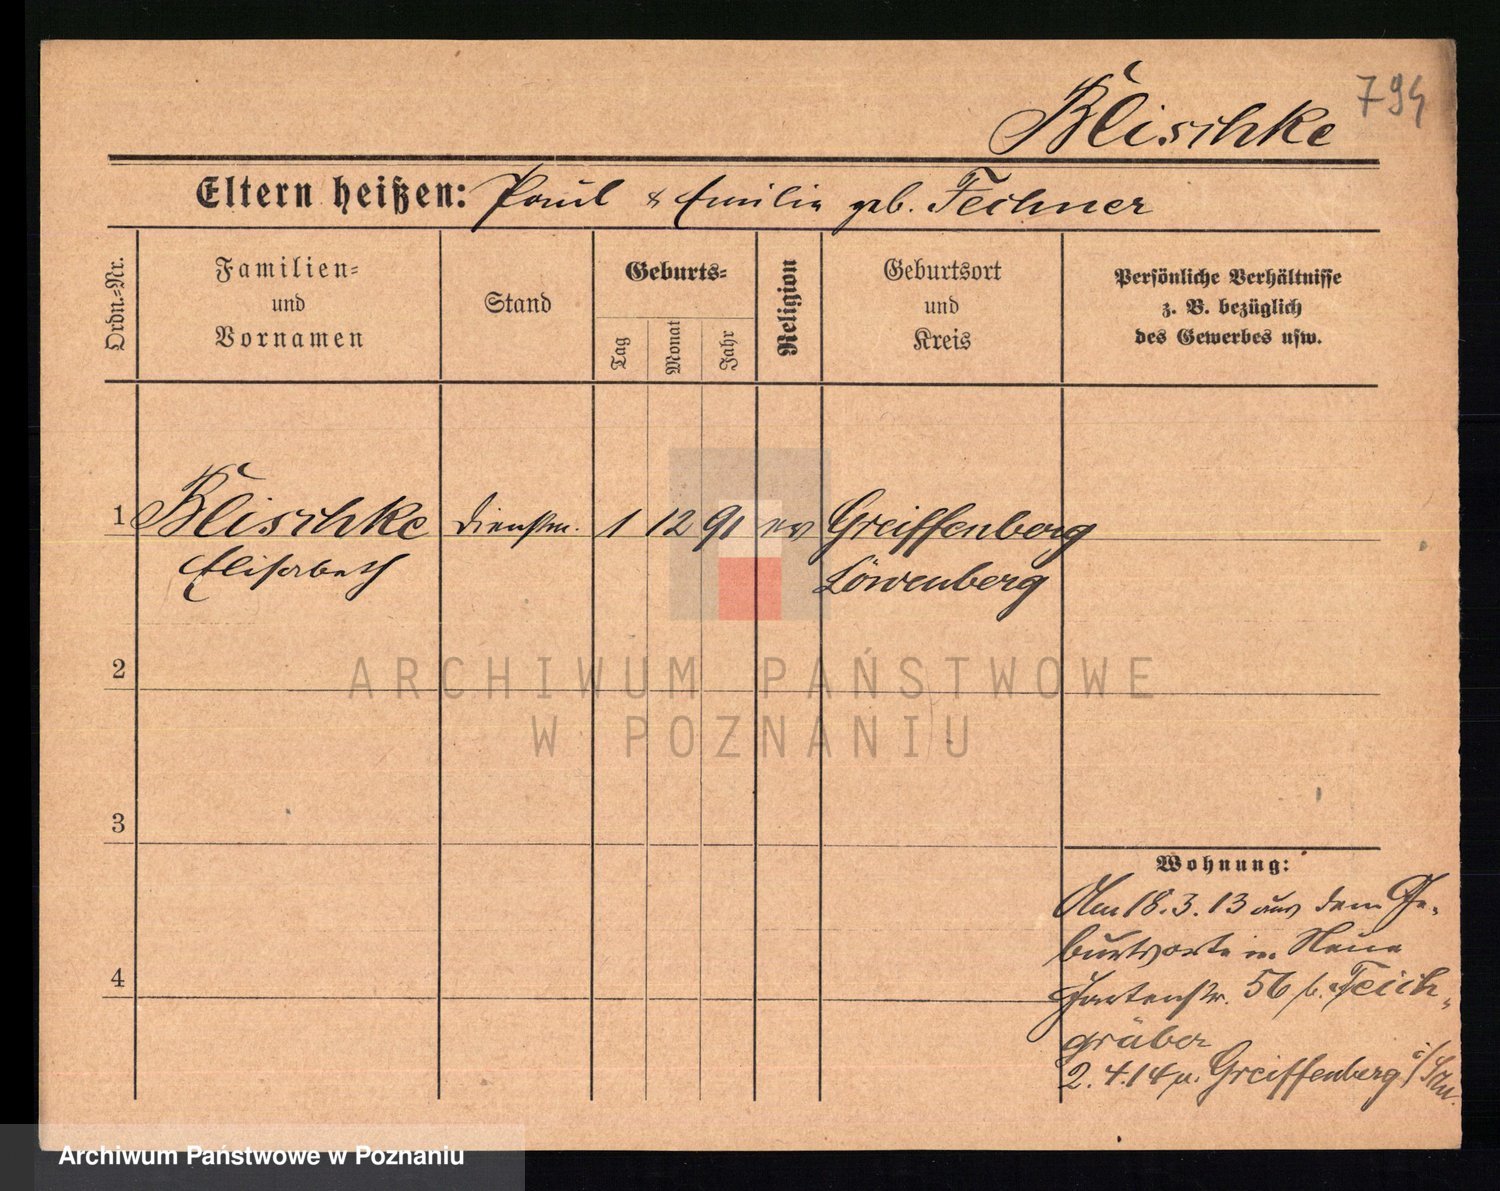 794
Blischke
Eltern heißen: Paul & Emilie geb. Fechner
Ordn.-Nr.
Familien-
und
Vornamen
Stand
Geburts-
Tag
Monat
Jahr
Religion
Geburtsort
und
Kreis
Persönliche Verhältnisse
z. B. bezüglich
des Gewerbes usw.
1 Blischke Dienstm. 1 12 91 ev Greiffenberg
Elisabeth Löwenberg
2
3
4
Wohnung:
Am 18.3.13 aus dem Ge-
burtsorte n. Neue
Gartenstr. 56 b. Teich-
gräber
2.4.14 n. Greiffenberg i/Schl.
ARCHIWUM PAŃSTWOWE
W POZNANIU
Archiwum Państwowe w Poznaniu